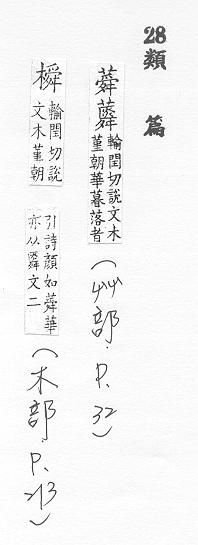 28 類篇
蕣䕭 輸閏切說文木
堇朝華暮落者
(艸部.P.32)
橓 輸閏切說
文木堇朝
引詩顏如蕣華
亦从舜文二
(木部.P.213)